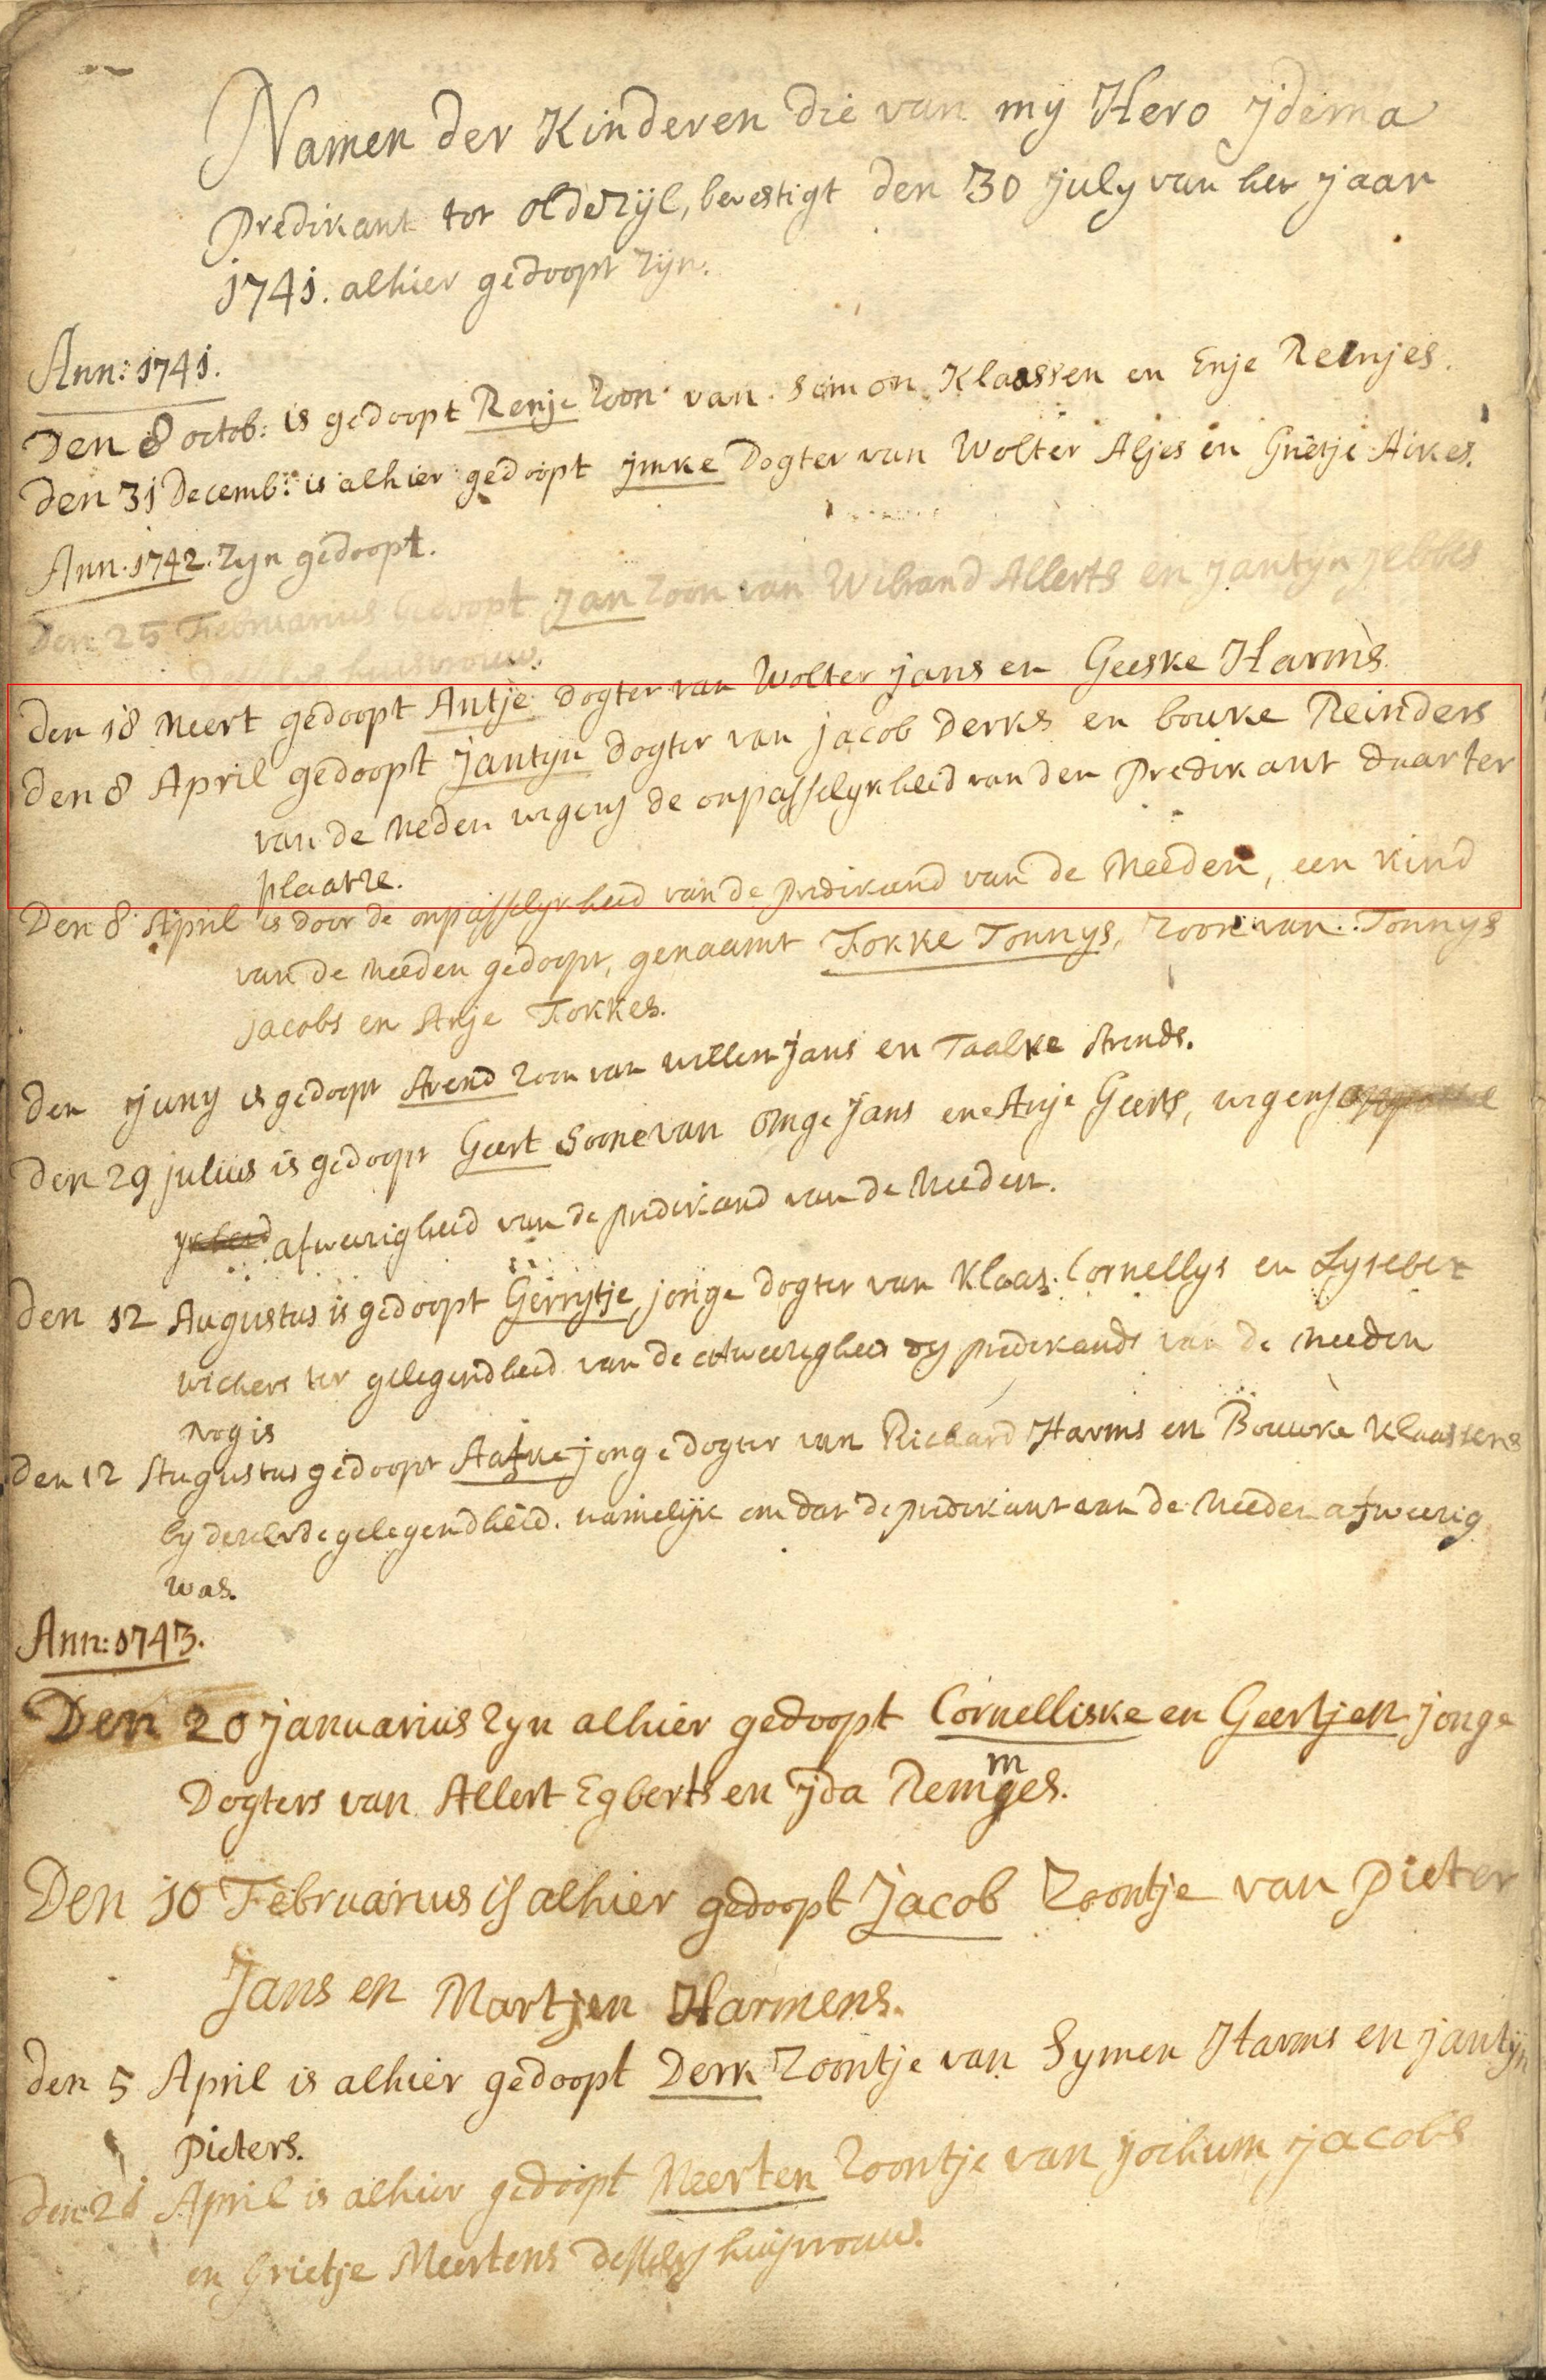 Namen der Kinderen die van my Hero Ydema
Predikant tot oldeZijl, bevestigt den 30 july van het jaar
1741. alhier gedoopt zijn.
Ann: 1741.
Den 8 octob: is gedoopt Renje Zoon van Simon Klaassen en Enje Reinjes.
Den 31 Decemb: is alhier gedoopt jmke Dogter van Wolter Aljes en Grietje Aikes.
Ann. 1742. Zyn gedoopt.
Den 25 Februarius Gedoopt Jan Zoon van Wibrand Allerts en Jantyn Jebbes
huisvrouw.
Den 18 Meert gedoopt Antje Dogter van Wolter Jans en Geeske Harms.
Den 8 April gedoopt Jantyn Dogter van Jacob Derks en bouke Reinders
van de Meden wegens de onpasselykheid van den Predikant daar ter
plaatze.
Den 8 April is door de onpasselykheid van de predikand van de Meeden, een kind
van de Meeden gedoopt, genaamt Fokke Tonnys, Zoon van Tonnys
Jacobs en Anje Fokkes.
Den juny is gedoopt Arend Zoon van willem Jans en Taalke Arends.
Den 29 julius is gedoopt Geert Soone van Omge Jans en Anje Geerts, wegens
afweezigheid van de predikand van de Meeden.
Den 12 Augustus is gedoopt Gerrytje jonge Dogter van Klaas Cornellys en Lysebet
wichers ter gelegendheid van de afweezigheid predikands van de Meeden
Nog is
Den 12 Augustus gedoopt Aafke jonge Dogter van Richard Harms en Bouwke Klaassens
by dezelvde gelegendheid. namelyk om dat de predikant van de Meeden afweezig
was.
Ann: 1743.
Den 20 januarius zyn alhier gedoopt Cornelliske en Geertjen jonge
Dogters van Allert Egberts en Yda Remges.
m
Den 10 Februarius is alhier gedoopt Jacob Zoontje van Pieter
Jans en Martjen Harmens.
Den 5 April is alhier gedoopt Derk Zoontje van Symen Harms en jantyn
Pieters.
Den 21 April is alhier gedoopt Meerten Zoontje van Jochum Jacobs
en Grietje Meertens desselvs huisvrouw.